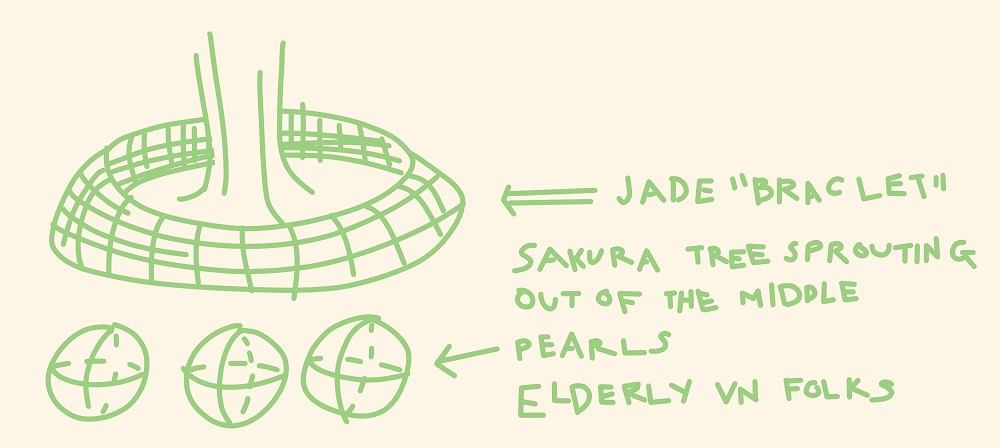 JADE "BRACLET"
SAKURA TREE SPROUTING
OUT OF THE MIDDLE
PEARLS
ELDERLY VN FOLKS